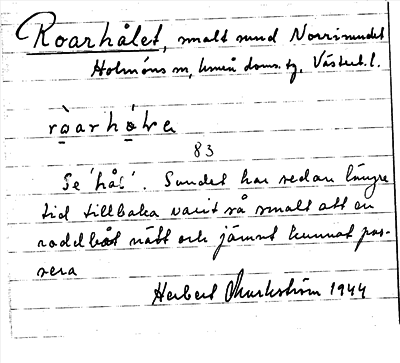 Roarhålet, smalt sund Norrsundet
Holmöns sn, Umeå doms. tg, Västerb. l.
ròarhó̱la
83
Se 'hål'. Sundet har sedan längre
tid tillbaka varit så smalt att en
roddbåt nätt och jämnt kunnat pas-
sera
Herbert Markström 1944